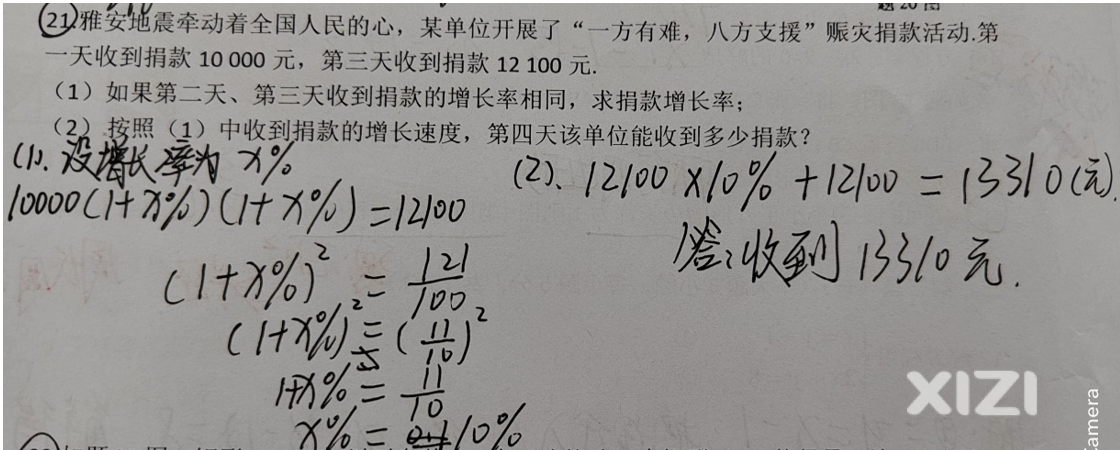 21.雅安地震牵动着全国人民的心，某单位开展了“一方有难，八方支援”赈灾捐款活动.第
一天收到捐款 10 000 元，第三天收到捐款 12 100 元.
（1）如果第二天、第三天收到捐款的增长率相同，求捐款增长率；
（2）按照（1）中收到捐款的增长速度，第四天该单位能收到多少捐款？
(1). 设增长率为 x%
10000(1+x%)(1+x%)=12100
(1+x%)² = 121/100
(1+x%)² = (11/10)²
1+x% = 11/10
x% = 10%
(2)、12100×10%+12100=13310(元).
答：收到13310元.
XIZI
Camera